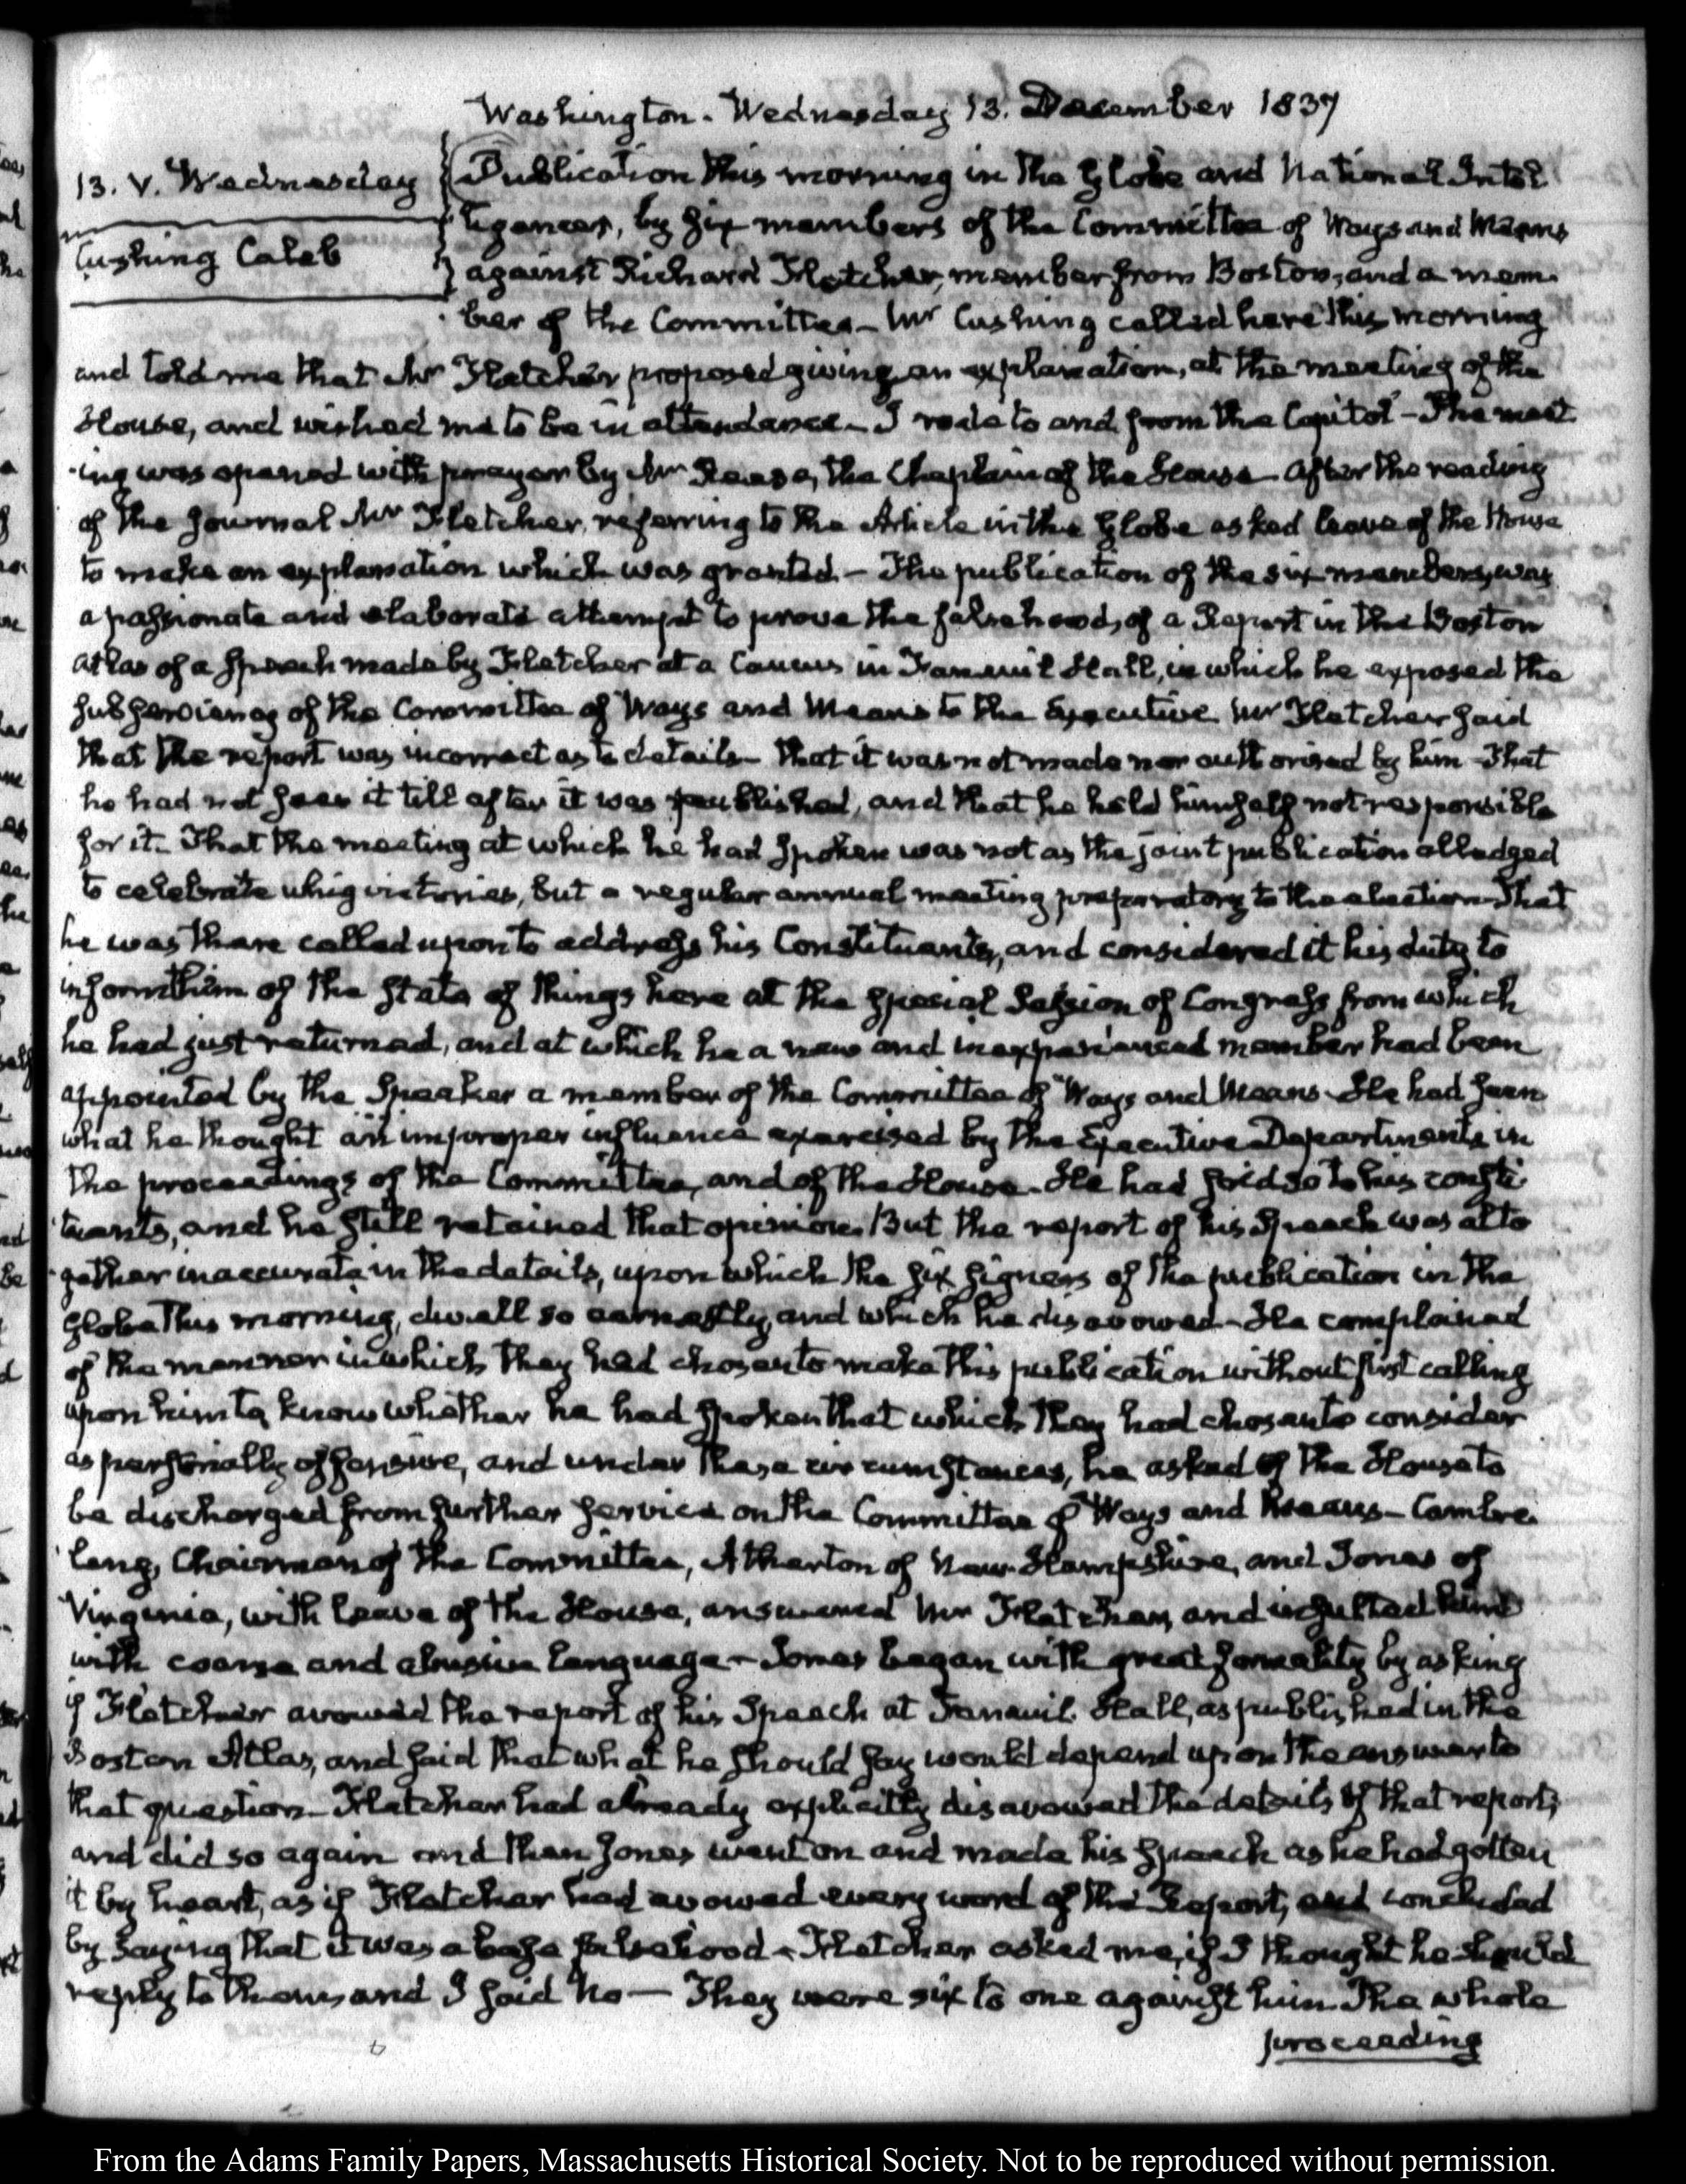 Washington. Wednesday 13. December 1837
13. V. Wednesday
Cushing Caleb
Publication this morning in the Globe and National Intel
ligencer, by six members of the Committee of Ways and Means
against Richard Fletcher, member from Boston, and a mem-
ber of the Committee — Mr Cushing called here this morning
and told me that Mr Fletcher proposed giving an explanation, at the meeting of the
House, and wished me to be in attendance — I rode to and from the Capitol — The meet
ing was opened with prayer by Mr Reese, the Chaplain of the House — After the reading
of the Journal Mr Fletcher, referring to the Article in the Globe asked leave of the House
to make an explanation which was granted — The publication of the six members, was
a passionate and elaborate attempt to prove the falsehood, of a Report in the Boston
Atlas of a Speech made by Fletcher at a Caucus in Faneuil Hall, in which he exposed the
subserviency of the Committee of Ways and Means to the Executive Mr Fletcher said
that the report was incorrect as to details — that it was not made nor authorised by him — That
he had not seen it till after it was published, and that he held himself not responsible
for it — That the meeting at which he had spoken was not as the joint publication alledged
to celebrate whig victories, but a regular annual meeting preparatory to the election — That
he was there called upon to address his Constituents, and considered it his duty to
inform them of the state of things here at the special Session of Congress from which
he had just returned, and at which he a new and inexperienced member had been
appointed by the Speaker a member of the Committee of Ways and Means — He had seen
what he thought an improper influence exercised by the Executive Departments in
the proceedings of the Committee, and of the House — He had said so to his consti
tuents, and he still retained that opinion. But the report of his Speech was alto
gether inaccurate in the details, upon which the six signers of the publication in the
Globe this morning, dwell so earnestly, and which he disavowed — He complained
of the manner in which they had chosen to make this publication without first calling
upon him to know whether he had spoken that which they had chosen to consider
as personally offensive, and under these circumstances, he asked of the House to
be discharged from further service on the Committee of Ways and Means — Cambre
leng, Chairman of the Committee, Atherton of New Hampshire, and Jones of
Virginia, with leave of the House, answered Mr Fletcher, and insulted him
with coarse and abusive language — Jones began with great formality by asking
if Fletcher avowed the report of his Speech at Faneuil Hall, as published in the
Boston Atlas, and said that what he should say would depend upon the answer to
that question — Fletcher had already explicitly disavowed the details of that report,
and did so again and then Jones went on and made his speech as he had gotten
it by heart, as if Fletcher had avowed every word of the Report, and concluded
by saying that it was a base falsehood — Fletcher asked me, if I thought he should
reply to them, and I said No — They were six to one against him The whole
proceeding
From the Adams Family Papers, Massachusetts Historical Society. Not to be reproduced without permission.